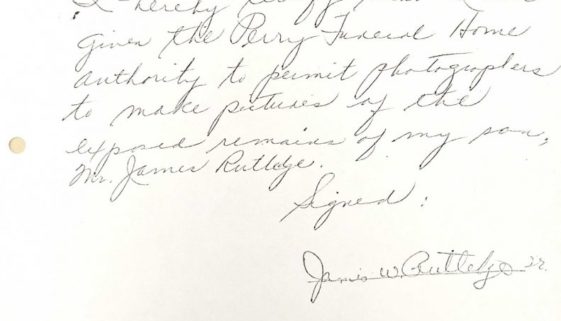 I hereby
given the Perry Funeral Home
authority to permit photographers
to make pictures of the
exposed remains of my son,
Mr. James Rutledge.
Signed:
James W. Rutledge Jr.